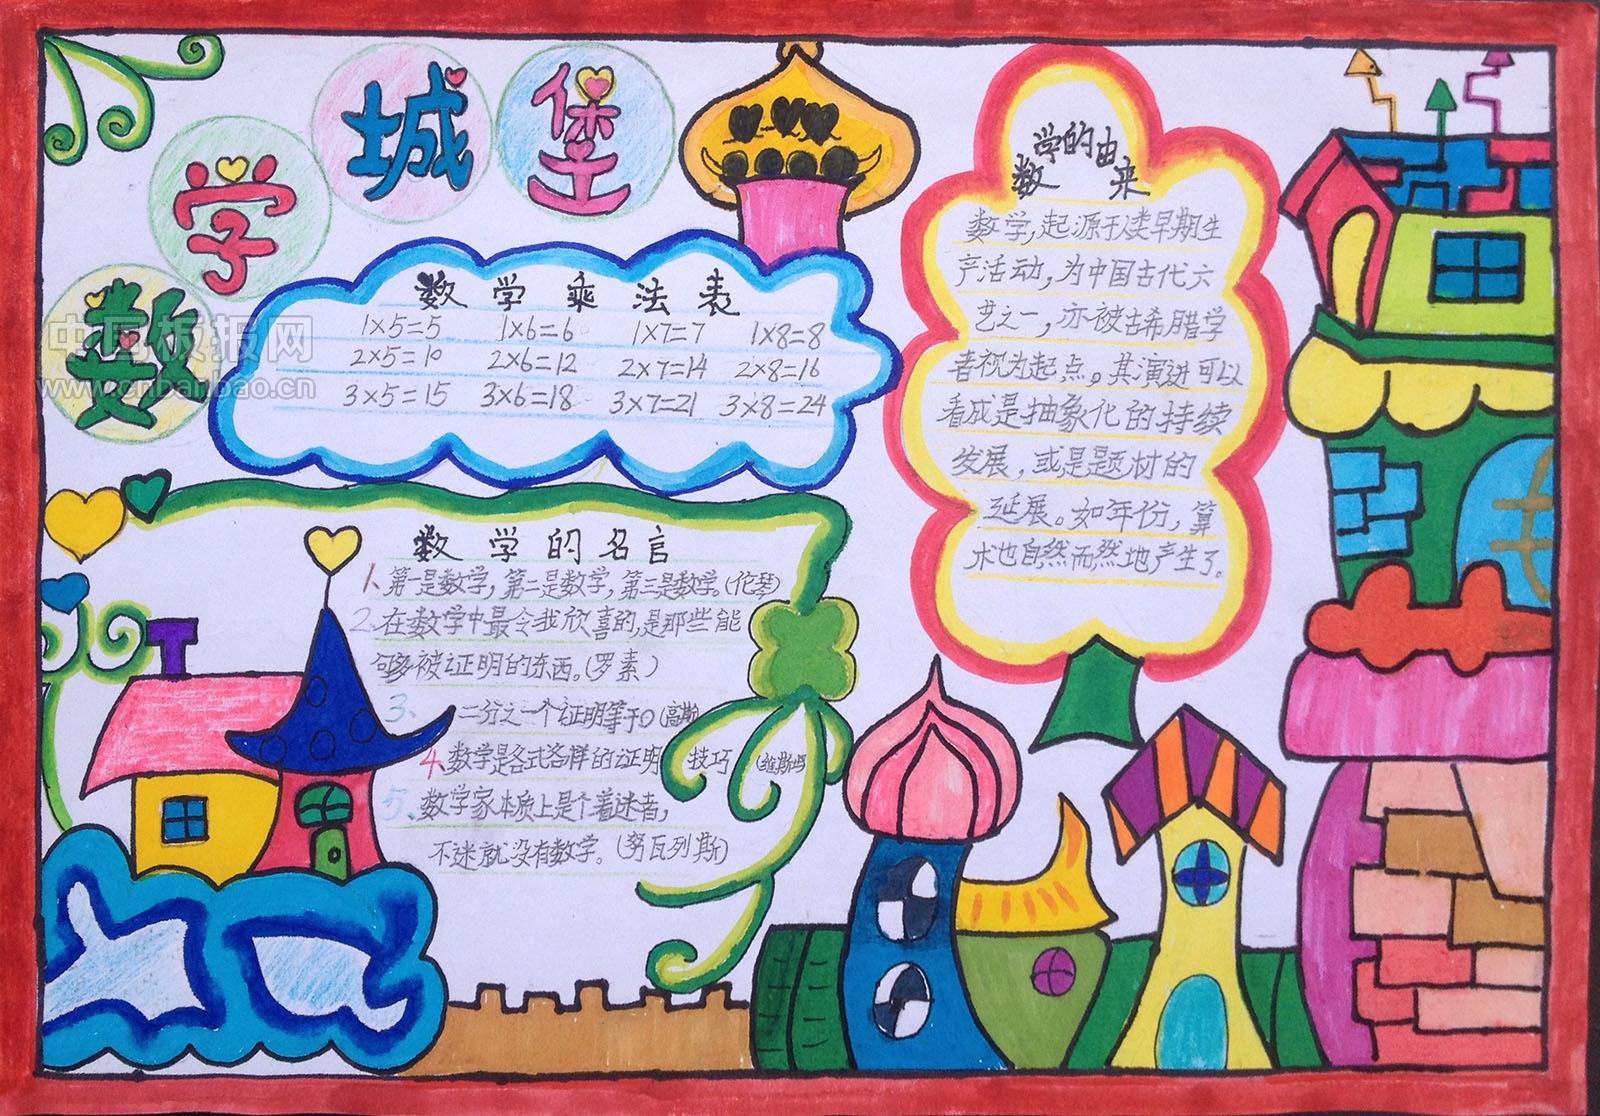 数学城堡
中国板报网
www.cnbanbao.cn
数学乘法表
1×5=5 1×6=6 1×7=7 1×8=8
2×5=10 2×6=12 2×7=14 2×8=16
3×5=15 3×6=18 3×7=21 3×8=24
数学的名言
1、第一是数学，第二是数学，第三是数学。(伦琴)
2、在数学中最令我欣喜的，是那些能
够被证明的东西。(罗素)
3、二分之一个证明等于0(高斯)
4、数学是各式各样的证明技巧
5、数学家本质上是个着迷者，
不迷就没有数学。(努瓦列斯)
数学的由来
数学，起源于人类早期生
产活动，为中国古代六
艺之一，亦被古希腊学
者视为起点。其演进可以
看成是抽象化的持续
发展，或是题材的
延展。如年份，算
术也自然而然地产生了。